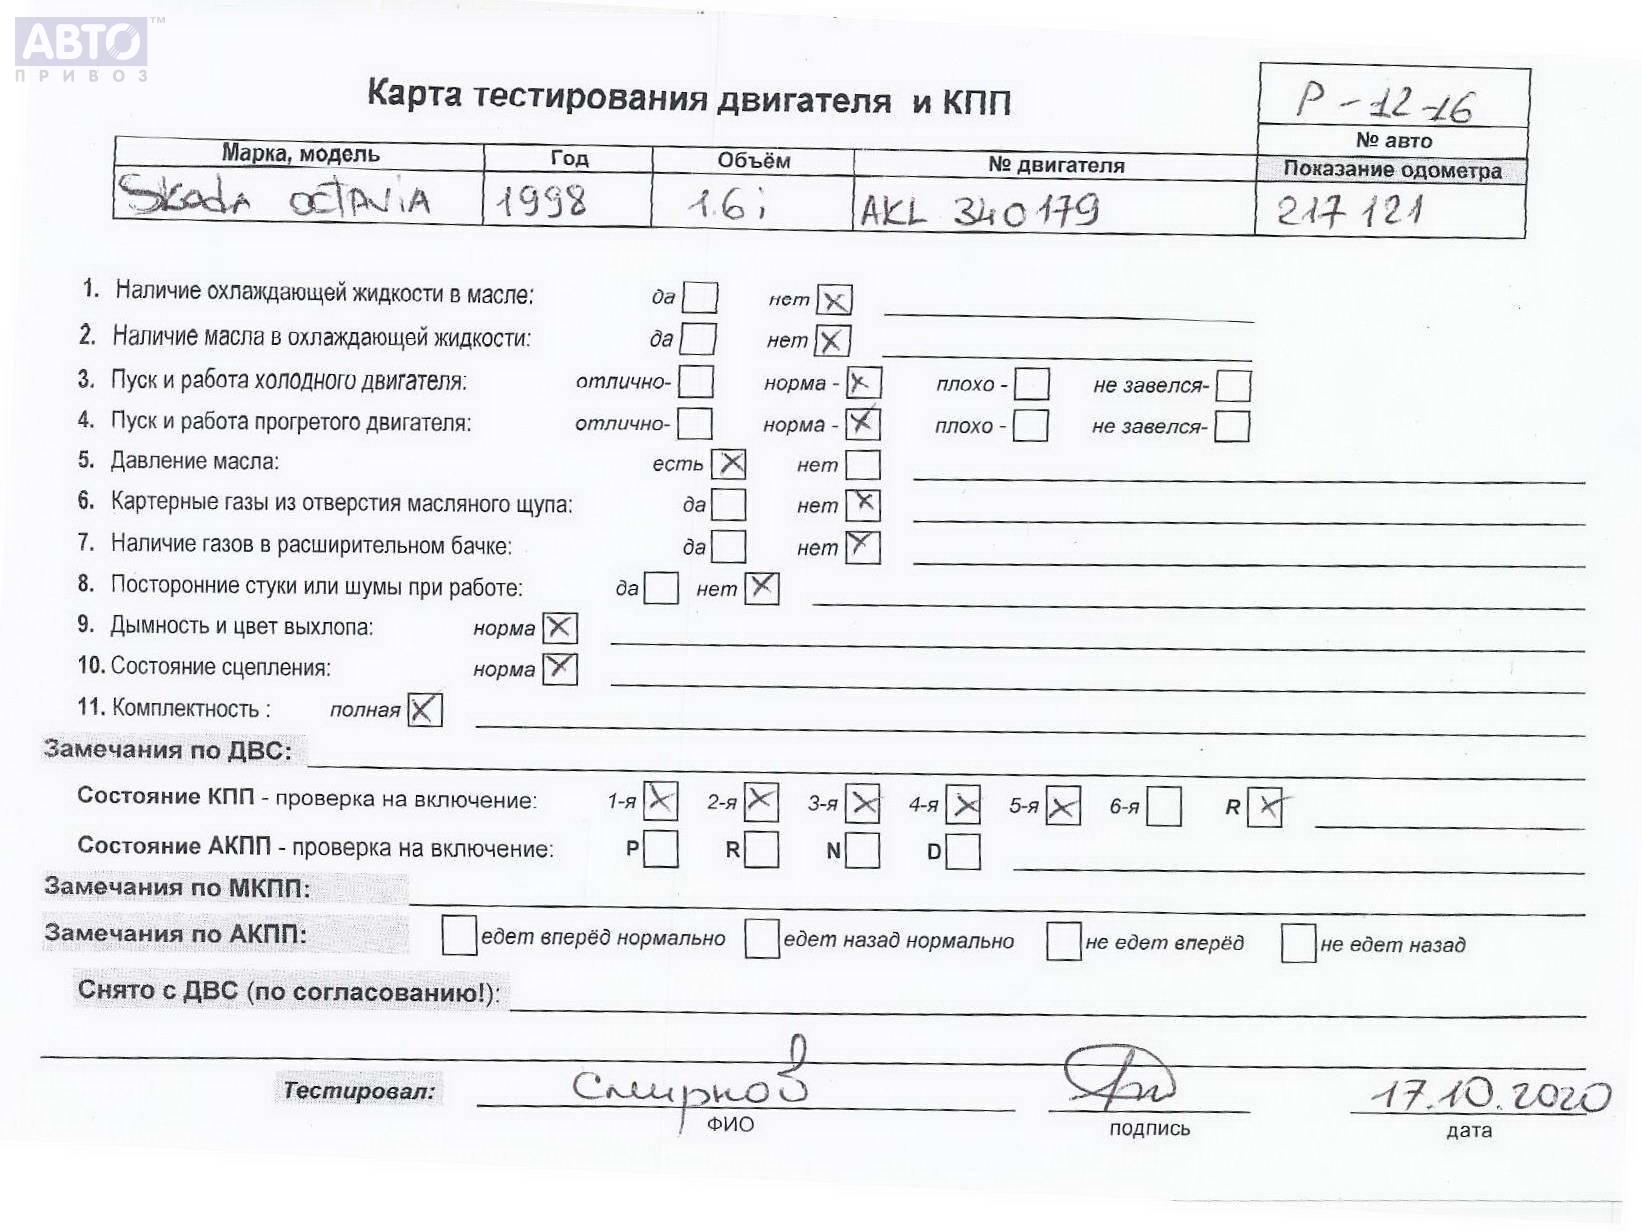 АВТО™
ПРИВОЗ
Карта тестирования двигателя и КПП
Р-12-16
№ авто
Марка, модель Год Объём № двигателя Показание одометра
Skoda octavia 1998 1.6i AKL 340179 217121
1. Наличие охлаждающей жидкости в масле: да нет
2. Наличие масла в охлаждающей жидкости: да нет
3. Пуск и работа холодного двигателя: отлично- норма - плохо - не завелся-
4. Пуск и работа прогретого двигателя: отлично- норма - плохо - не завелся-
5. Давление масла: есть нет
6. Картерные газы из отверстия масляного щупа: да нет
7. Наличие газов в расширительном бачке: да нет
8. Посторонние стуки или шумы при работе: да нет
9. Дымность и цвет выхлопа: норма
10. Состояние сцепления: норма
11. Комплектность : полная
Замечания по ДВС:
Состояние КПП - проверка на включение: 1-я 2-я 3-я 4-я 5-я 6-я R
Состояние АКПП - проверка на включение: P R N D
Замечания по МКПП:
Замечания по АКПП: едет вперёд нормально едет назад нормально не едет вперёд не едет назад
Снято с ДВС (по согласованию!):
Тестировал: Смирнов 17.10.2020
ФИО подпись дата